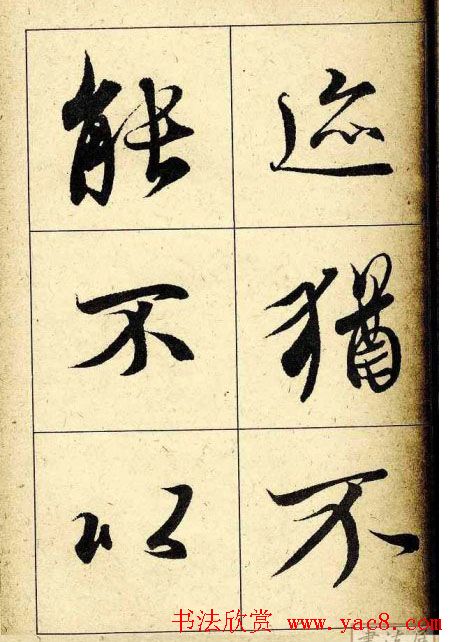 迹猶不
能不以
书法欣赏 www.yac8.com